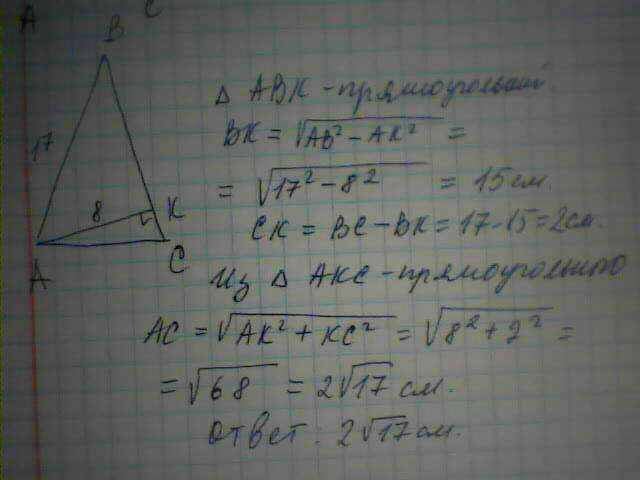 A
C
B
17
8
K
A
C
Δ ABK - прямоугольный.
BK = √AB² - AK² =
= √17² - 8² = 15 см.
CK = BC - BK = 17 - 15 = 2 см.
Из Δ AKC - прямоугольного
AC = √AK² + KC² = √8² + 2² =
= √68 = 2√17 см.
ответ: 2√17 см.